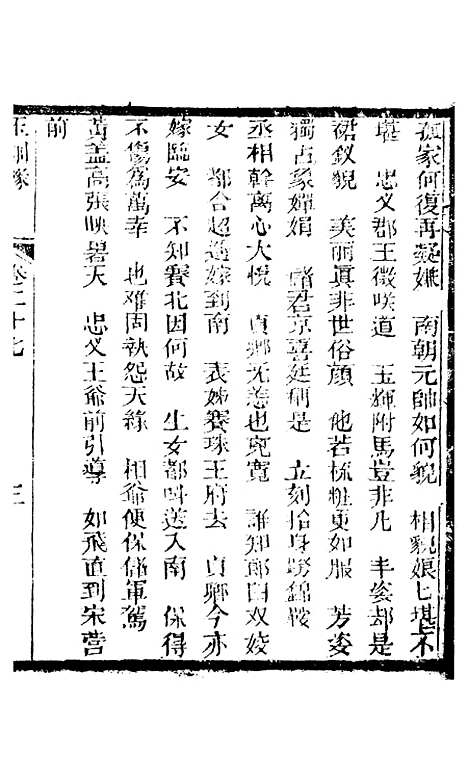 孤家何復再疑嫌　南朝元帥如何貌　相貌娘乜堪不
堪　忠义郡王微咲道　玉輝附馬豈非凡　丰姿却是
裙釵貌　美丽眞非世俗顔　他若梳粧更如服　芳姿
獨占象嬋娟　諸君京喜廷稱是　立刻抬身鞍
丞相幹离心大悅　貞卿无恙也寛　誰知郎曰双姣
女　都合超逃嫁到南　表姊賽珠王府去　貞卿今亦
嫁臨安　不知賽北因何故　生女都呌送入南　保得
不傷爲萬幸　也难周執怨天緣　相爺便保儲軍駕
黃盖高張映碧天　忠义王爺前引導　如飛直到宋营
前
玉釧緣　卷二十七　三